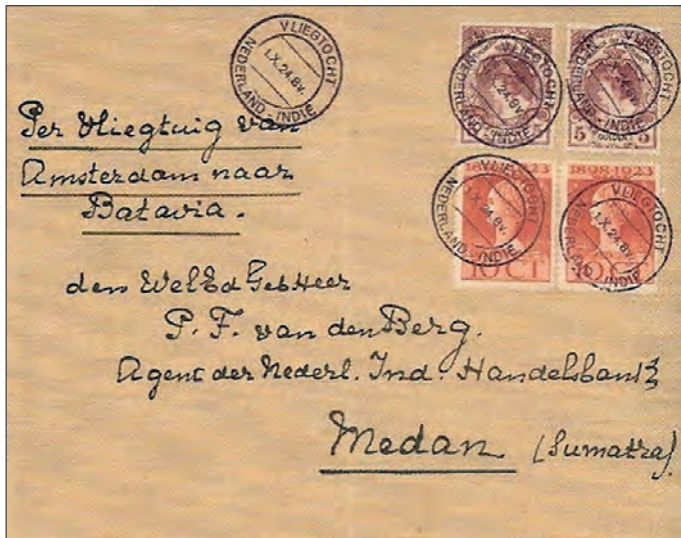 VLIEGTOCHT
1.X.24.8V.
NEDERLAND-INDIE
VLIEGTOCHT
24.8V.
NEDERLAND-INDIE
VLIEGTOCHT
NEDERLAND-INDIE
5 GULDEN 5
1898-1923
VLIEGTOCHT
1.X.24.8V.
NEDERLAND-INDIE
10 CT
1898-1923
VLIEGTOCHT
1.X.24.8V.
NEDERLAND-INDIE
10 CT
Per Vliegtuig van
Amsterdam naar
Batavia.
den WelEd Geb Heer
P. F. van den Berg.
Agent der Nederl. Ind. Handelsbank
Medan (Sumatra).